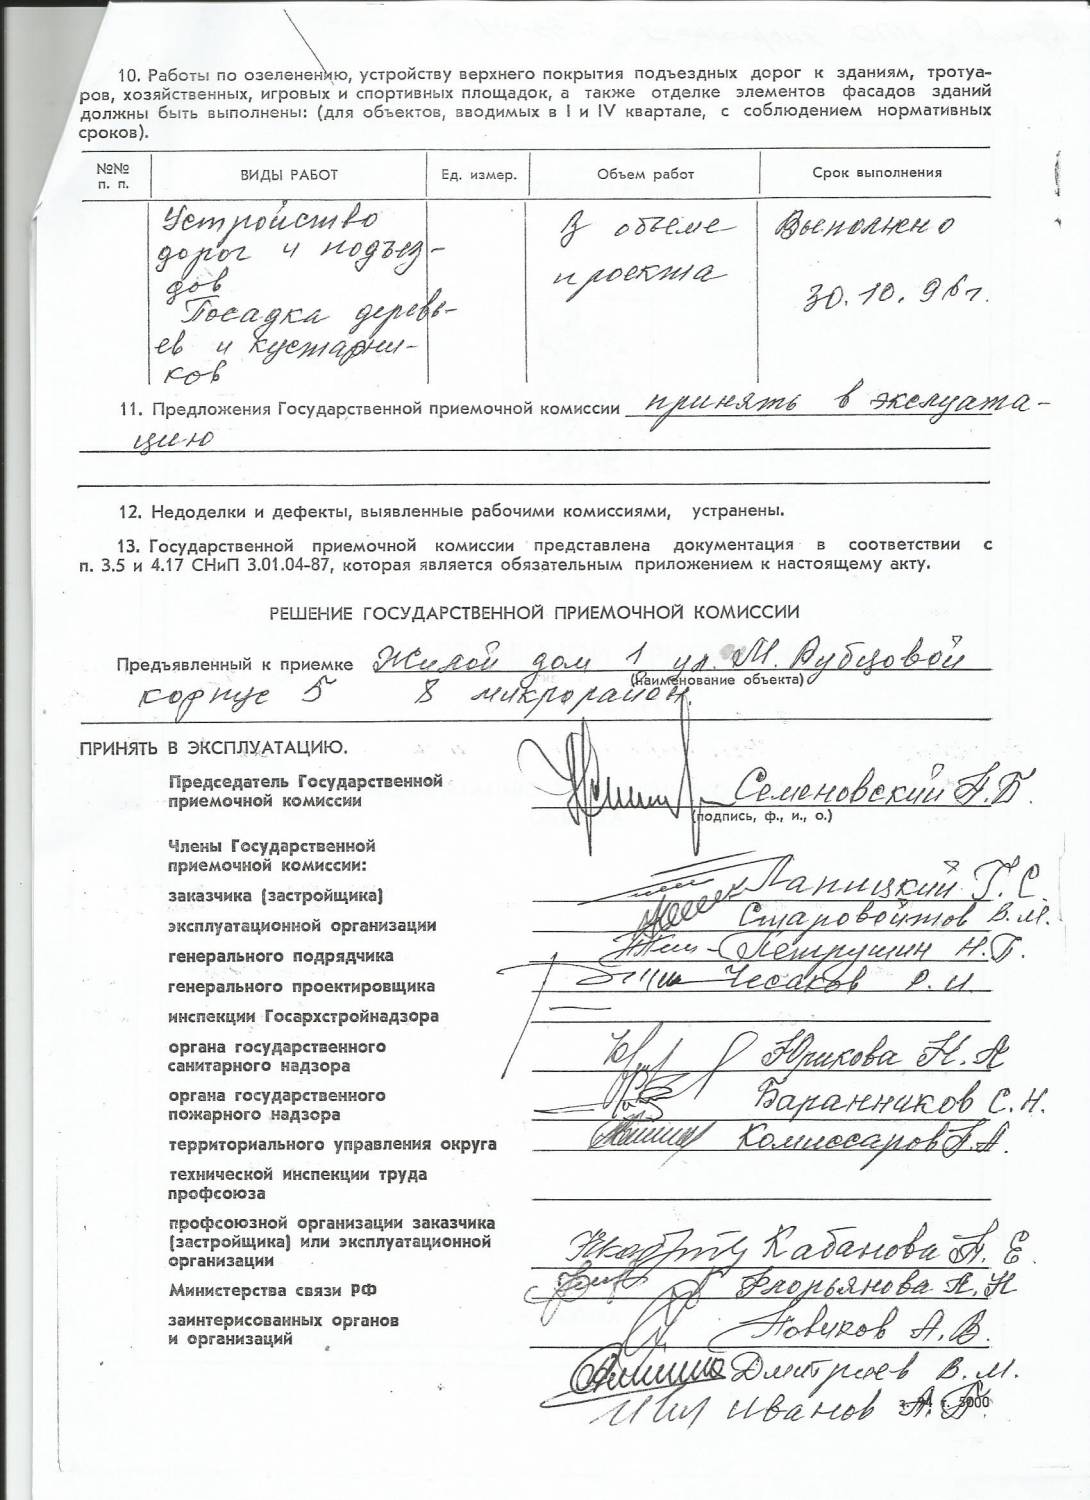 10. Работы по озеленению, устройству верхнего покрытия подъездных дорог к зданиям, тротуа-
ров, хозяйственных, игровых и спортивных площадок, а также отделке элементов фасадов зданий
должны быть выполнены: (для объектов, вводимых в I и IV квартале, с соблюдением нормативных
сроков).
№№ п. п. ВИДЫ РАБОТ Ед. измер. Объем работ Срок выполнения
Устройство В объеме Выполнено
дорог и подъез-
дов проекта 30.10.96г.
Посадка деревь-
ев и кустарни-
ков
11. Предложения Государственной приемочной комиссии принять в эксплуата-
цию
12. Недоделки и дефекты, выявленные рабочими комиссиями, устранены.
13. Государственной приемочной комиссии представлена документация в соответствии с
п. 3.5 и 4.17 СНиП 3.01.04-87, которая является обязательным приложением к настоящему акту.
РЕШЕНИЕ ГОСУДАРСТВЕННОЙ ПРИЕМОЧНОЙ КОМИССИИ
Предъявленный к приемке Жилой дом 1 ул. М. Рубцовой
(наименование объекта)
корпус 5 8 микрорайон.
ПРИНЯТЬ В ЭКСПЛУАТАЦИЮ.
Председатель Государственной
приемочной комиссии Семеновский А.Б.
(подпись, ф., и., о.)
Члены Государственной
приемочной комиссии:
заказчика (застройщика) Лапицкий Г.С.
эксплуатационной организации Старовойтов В.М.
генерального подрядчика Петрушин Н.Б.
генерального проектировщика Чесаков Р.И.
инспекции Госархстройнадзора
органа государственного
санитарного надзора Юрикова Н.А
органа государственного
пожарного надзора Баранников С.Н.
территориального управления округа Комиссаров А.А.
технической инспекции труда
профсоюза
профсоюзной организации заказчика
(застройщика) или эксплуатационной
организации Кабанова А.Е.
Министерства связи РФ Флорьянова А.Н
заинтерисованных органов
и организаций Новиков А.В.
Дмитриев В.М.
Иванов А.Б.
т. 5000